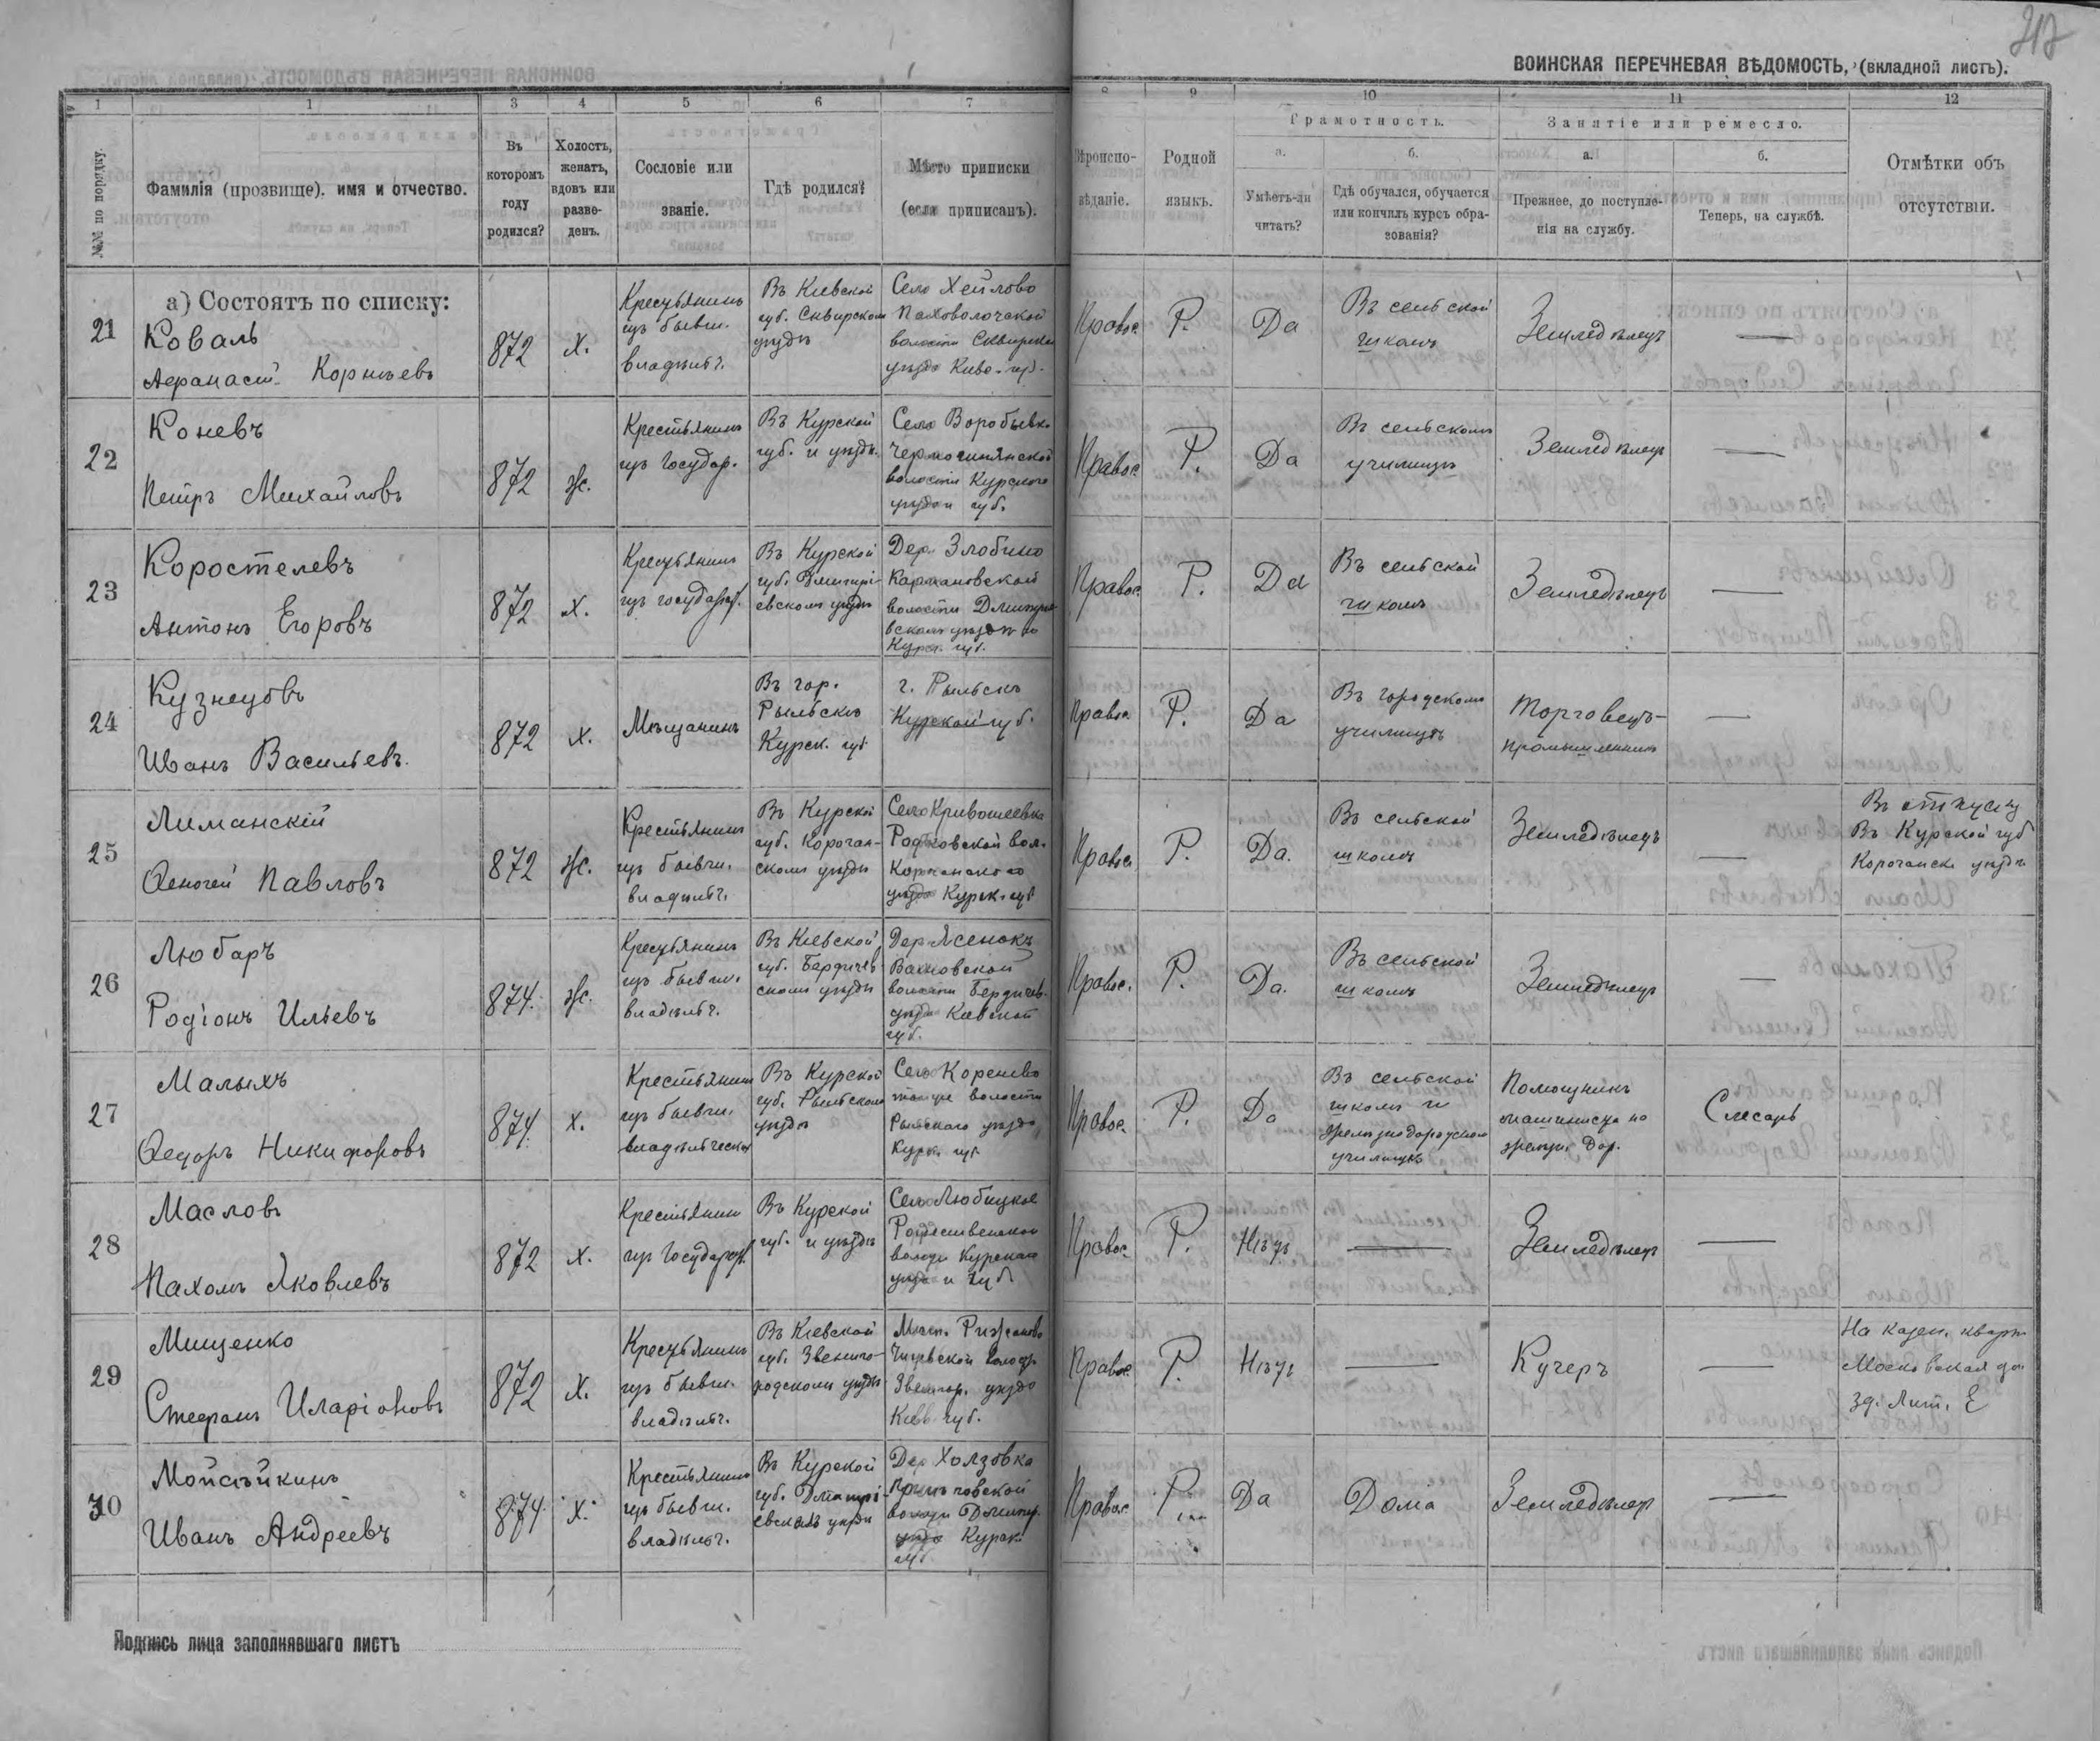 212
ВОИНСКАЯ ПЕРЕЧНЕВАЯ ВѢДОМОСТЬ, (вкладной листъ).
1 1 3 4 5 6 7 8 9 10 11 12
№№ по порядку.
Фамилія (прозвище), имя и отчество.
Въ которомъ году родился?
Холостъ, женатъ, вдовъ или разведенъ.
Сословіе или званіе.
Гдѣ родился?
Мѣсто приписки (если приписанъ).
Вѣроисповѣданіе.
Родной языкъ.
Грамотность.
а.
Умѣетъ-ли читать?
б.
Гдѣ обучался, обучается или кончилъ курсъ образованія?
Занятіе или ремесло.
а.
Прежнее, до поступленія на службу.
б.
Теперь, на службѣ.
Отмѣтки объ отсутствіи.
а) Состоятъ по списку:
21
Коваль
Афанасій Корнѣевъ
872
х.
Крестьянинъ
изъ бывш.
владѣльч.
Въ Кіевской
губ. Сквирскомъ
уѣздѣ
Село Хейлово
волости Сквирска
уѣзда Кіев. губ.
Правос.
Р.
Да
Въ сельской
школѣ
Земледѣлецъ
—
22
Коневъ
Петръ Михайловъ
872
ж.
Крестьянинъ
изъ государ.
Въ Курской
губ. и уѣздѣ.
Село Воробьевка
волости Курскаго
уѣзда и губ.
Правос.
Р.
Да
Въ сельскомъ
училищѣ
Земледѣлецъ
—
23
Коростелевъ
Антонъ Егоровъ
872
х.
Крестьянинъ
изъ государ.
Въ Курской
губ. Дмитрі-
евскомъ уѣздѣ
Дер. Злобино
волости Дмитрі
Курск. губ.
Правос.
Р.
Да
Въ сельской
школѣ
Земледѣлецъ
—
24
Кузнецовъ
Иванъ Васильевъ.
872
х.
Мѣщанинъ
Въ гор.
Рыльскѣ
Курск. губ.
г. Рыльскъ
Курской губ.
Правос.
Р.
Да
Въ городскомъ
училищѣ
Торговецъ-
промышленникъ
—
25
Лиманскій
Павловъ
872
ж.
Крестьянинъ
изъ бывш.
владѣльч.
Въ Курской
губ. Корочан-
скомъ уѣздѣ
Село Кривошеевка
Корочанскаго
уѣзда Курск. губ.
Правос.
Р.
Да.
Въ сельской
школѣ
Земледѣлецъ
—
Въ отпуску
Въ Курской губ
Корочанск. уѣздѣ
26
Любаръ
Родіонъ Ильевъ
874.
ж.
Крестьянинъ
изъ бывш.
владѣльч.
Въ Кіевской
губ. Бердичев-
скомъ уѣздѣ
Дер. Ясенокъ
волости Бердичев.
уѣзда Кіевской
губ.
Правос.
Р.
Да.
Въ сельской
школѣ
Земледѣлецъ
—
27
Малыхъ
Ѳедоръ Никифоровъ
874.
х.
Крестьянинъ
изъ бывш.
владѣльческ
Въ Курской
губ. Рыльскомъ
уѣздѣ
Село Коренево
той же волости
Рыльскаго уѣзда
Курск. губ.
Правос.
Р.
Да
Въ сельской
школѣ и
желѣзнодорожномъ
училищѣ
Помощникъ
машиниста на
желѣзн. дор.
Слесарь
28
Масловъ
Пахомъ Яковлевъ
872
х.
Крестьянинъ
изъ государ.
Въ Курской
губ. и уѣздѣ
Село Любицкое
Рождественской
волости Курскаго
уѣзда и губ
Правос.
Р.
Нѣтъ
—
Земледѣлецъ
—
29
Мищенко
Стефанъ Иларіоновъ
872
х.
Крестьянинъ
изъ бывш.
владѣльч.
Въ Кіевской
губ. Звениго-
родскомъ уѣздѣ
Звенигор. уѣзда
Кіев. губ.
Правос.
Р.
Нѣтъ
—
Кучеръ
—
На казен. кварт
Московская
зд. Лит. Е
30
Мойсѣйкинъ
Иванъ Андреевъ
874
х.
Крестьянинъ
изъ бывш.
владѣльч.
Въ Курской
губ. Дмитрі-
евскомъ уѣздѣ
Дер. Холзовка
волости Дмитр.
уѣзда Курск.
губ.
Правос.
Р.
Да
Дома
Земледѣлецъ
—
Подпись лица заполнявшаго листъ